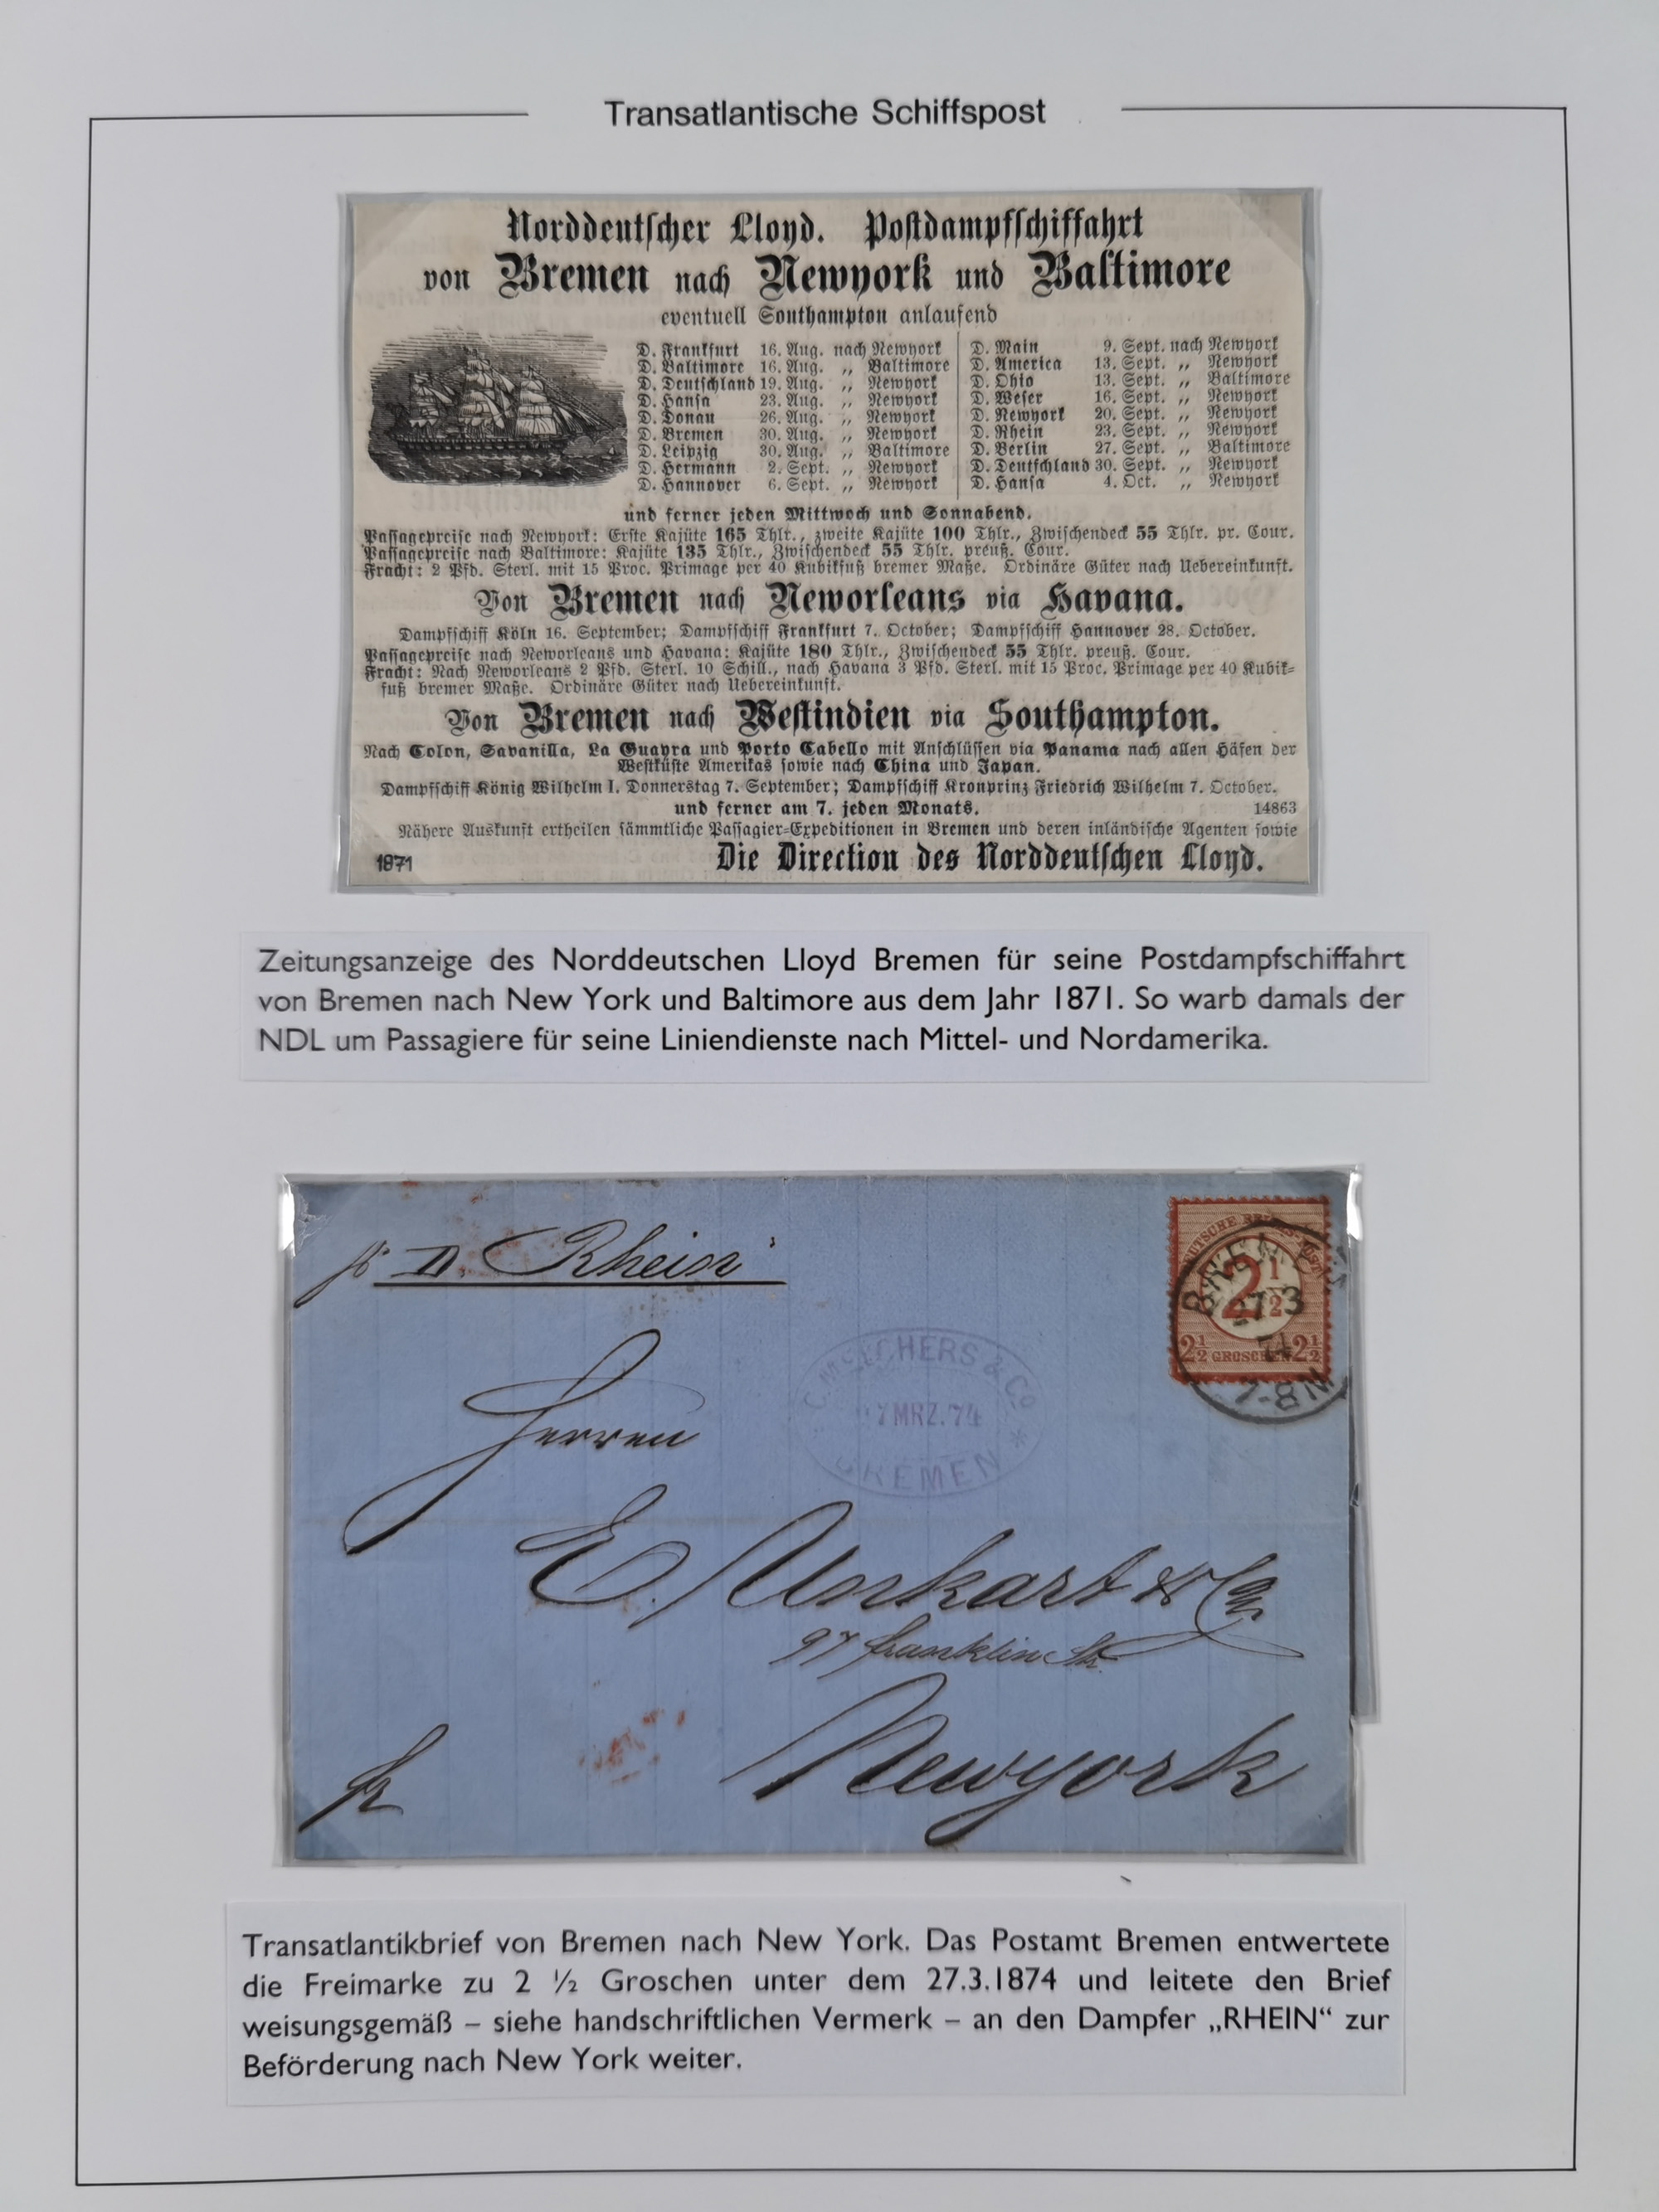 Transatlantische Schiffspost
Norddeutscher Lloyd. Postdampfschiffahrt
von Bremen nach Newyork und Baltimore
eventuell Southampton anlaufend
D. Frankfurt 16. Aug. nach Newyork
D. Baltimore 16. Aug. „ Baltimore
D. Deutschland 19. Aug. „ Newyork
D. Hansa 23. Aug. „ Newyork
D. Donau 26. Aug. „ Newyork
D. Bremen 30. Aug. „ Newyork
D. Leipzig 30. Aug. „ Baltimore
D. Hermann 2. Sept. „ Newyork
D. Hannover 6. Sept. „ Newyork
D. Main 9. Sept. nach Newyork
D. America 13. Sept. „ Newyork
D. Ohio 13. Sept. „ Baltimore
D. Weser 16. Sept. „ Newyork
D. Newyork 20. Sept. „ Newyork
D. Rhein 23. Sept. „ Newyork
D. Berlin 27. Sept. „ Baltimore
D. Deutschland 30. Sept. „ Newyork
D. Hansa 4. Oct. „ Newyork
und ferner jeden Mittwoch und Sonnabend.
Passagepreise nach Newyork: Erste Kajüte 165 Thlr., zweite Kajüte 100 Thlr., Zwischendeck 55 Thlr. pr. Cour.
Passagepreise nach Baltimore: Kajüte 135 Thlr., Zwischendeck 55 Thlr. preuß. Cour.
Fracht: 2 Pfd. Sterl. mit 15 Proc. Primage per 40 Kubikfuß bremer Maße. Ordinäre Güter nach Uebereinkunft.
Von Bremen nach Neworleans via Havana.
Dampfschiff Köln 16. September; Dampfschiff Frankfurt 7. October; Dampfschiff Hannover 28. October.
Passagepreise nach Neworleans und Havana: Kajüte 180 Thlr., Zwischendeck 55 Thlr. preuß. Cour.
Fracht: Nach Neworleans 2 Pfd. Sterl. 10 Schill., nach Havana 3 Pfd. Sterl. mit 15 Proc. Primage per 40 Kubik-
fuß bremer Maße. Ordinäre Güter nach Uebereinkunft.
Von Bremen nach Westindien via Southampton.
Nach Colon, Savanilla, La Guayra und Porto Cabello mit Anschlüssen via Panama nach allen Häfen der
Westküste Amerikas sowie nach China und Japan.
Dampfschiff König Wilhelm I. Donnerstag 7. September; Dampfschiff Kronprinz Friedrich Wilhelm 7. October.
und ferner am 7. jeden Monats. 14863
Nähere Auskunft ertheilen sämmtliche Passagier-Expeditionen in Bremen und deren inländische Agenten sowie
1871 Die Direction des Norddeutschen Lloyd.
Zeitungsanzeige des Norddeutschen Lloyd Bremen für seine Postdampfschiffahrt
von Bremen nach New York und Baltimore aus dem Jahr 1871. So warb damals der
NDL um Passagiere für seine Liniendienste nach Mittel- und Nordamerika.
pr D. Rhein
DEUTSCHE REICHS-POST
2 1/2
2 1/2 GROSCHEN 2 1/2
BREMEN
27 3
74
7-8 N
C. MELCHERS & Co
27 MRZ. 74
BREMEN *
Herren
E. Unkart & Co
97 Franklin Str.
Newyork
fr
Transatlantikbrief von Bremen nach New York. Das Postamt Bremen entwertete
die Freimarke zu 2 ½ Groschen unter dem 27.3.1874 und leitete den Brief
weisungsgemäß – siehe handschriftlichen Vermerk – an den Dampfer „RHEIN“ zur
Beförderung nach New York weiter.